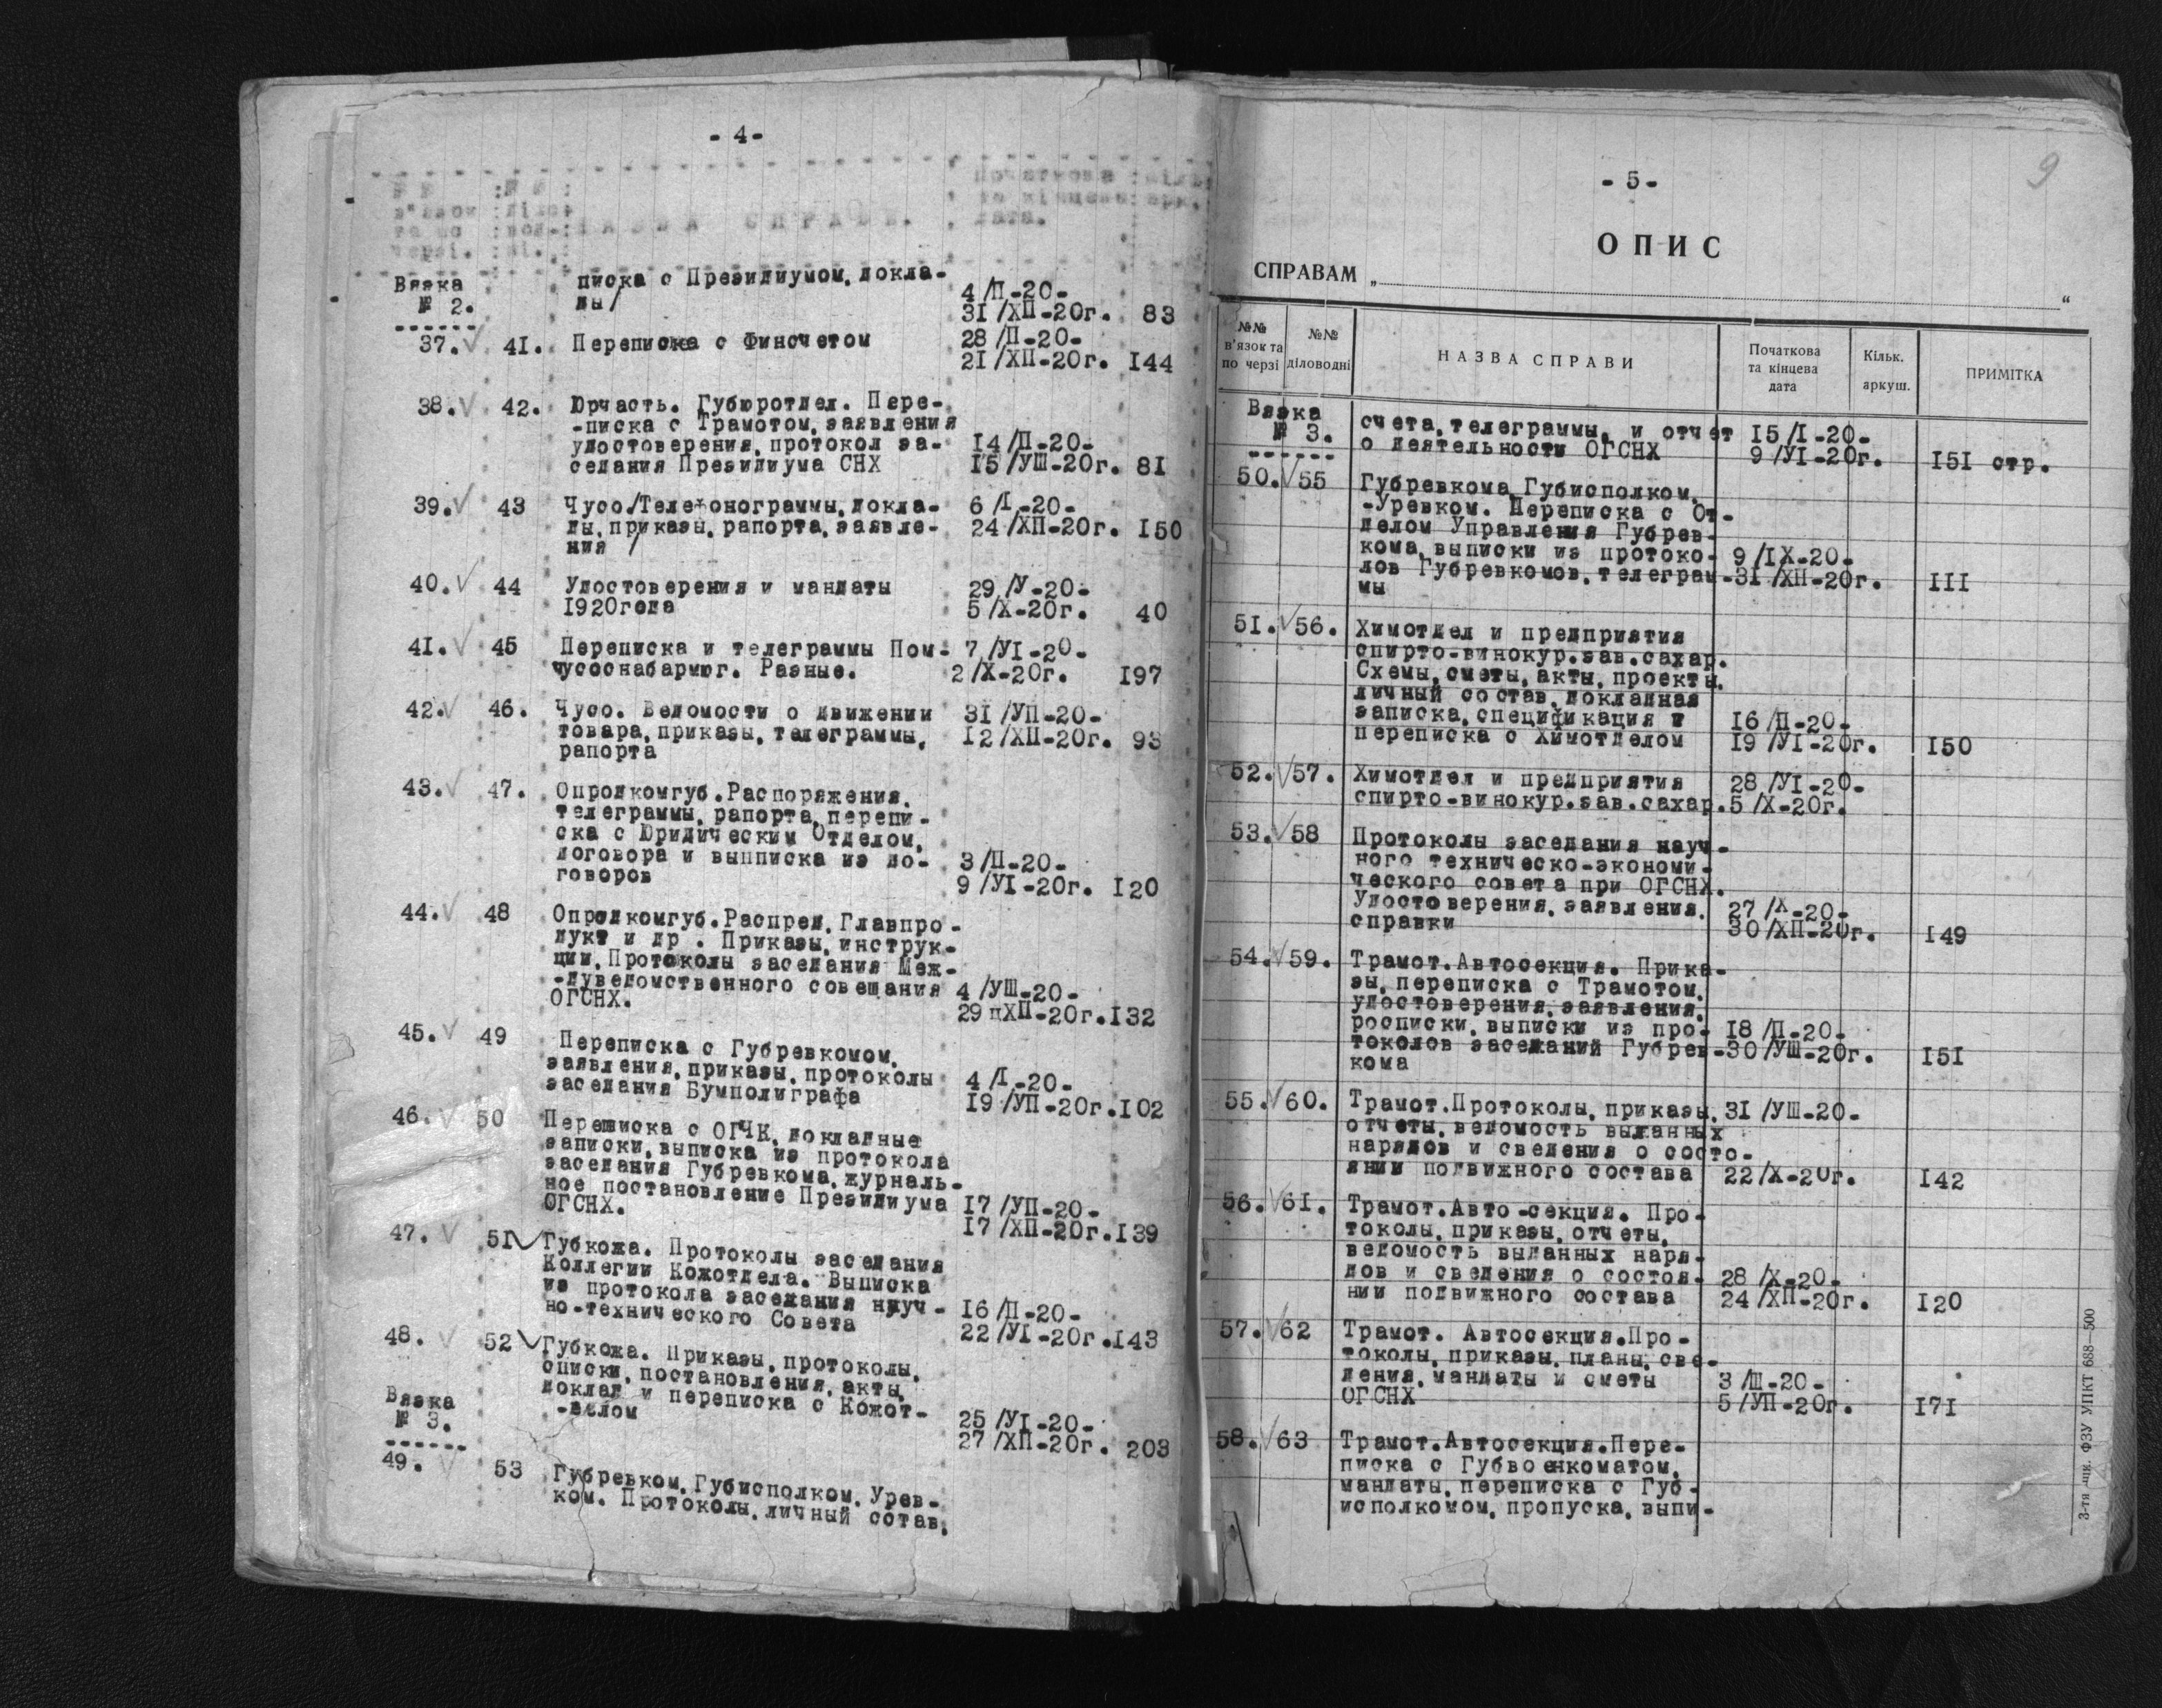 - 4 -
№ № :№ № : Початкова :кіль
в'язок :діло: та кінцева: арк.
та по :вод-: НАЗВА СПРАВИ. дата.
черзі. :ні. :
Вязка писка с Президиумом, докла-
№ 2. ды/ 4/П-20-
31/ХП-20г. 83
37. 41. Переписка с Финсчетом 28/П-20-
21/ХП-20г. 144
38. 42. Юрчасть. Губюротдел. Пере-
-писка с Трамотом, заявления
удостоверения, протокол за- 14/П-20-
седания Президиума СНХ 15/УШ-20г. 81
39. 43 Чусо/Телефонограммы, докла- 6/I-20-
ды, приказы, рапорта, заявле- 24/ХП-20г. 150
ния /
40. 44 Удостоверения и мандаты 29/У-20-
1920года 5/Х-20г. 40
41. 45 Переписка и телеграммы Пом- 7/УI-20-
чусоснабармюг. Разные. 2/Х-20г. 197
42. 46. Чусо. Ведомости о движении 31/УП-20-
товара, приказы, телеграммы, 12/ХП-20г. 93
рапорта
43. 47. Опродкомгуб.Распоряжения,
телеграммы, рапорта, перепи-
ска с Юридическим Отделом,
договора и выпписка из до- 3/П-20-
говоров 9/УI-20г. 120
44. 48 Опродкомгуб.Распред, Главпро-
дукт и др . Приказы, инструк-
ции, Протоколы заседания Меж-
-дуведомственного совещания 4/УШ-20-
ОГСНХ. 29пХП-20г.132
45. 49 Переписка с Губревкомом,
заявления, приказы, протоколы 4/I-20-
заседания Бумполиграфа 19/УП-20г.102
46. 50 Переписка с ОГЧК, докладные
записки, выписка из протокола
заседания Губревкома, журналь-
ное постановление Президиума 17/УП-20-
ОГСНХ. 17/ХП-20г.139
47. 51 Губкожа. Протоколы заседания
Коллегии Кожотдела. Выписка
из протокола заседания науч- 16/П-20-
но-технического Совета 22/УI-20г.143
48. 52 Губкожа. Приказы, протоколы,
списки, постановления, акты,
доклад и переписка с Кожот- 25/УI-20-
-делом 27/ХП-20г. 203
Вязка
№ 3.
49. 53 Губревком, Губисполком, Урев-
ком. Протоколы, личный состав,
9
- 5 -
ОПИС
СПРАВАМ „ “
№№ в'язок та по черзі
№№ діловодні
НАЗВА СПРАВИ
Початкова та кінцева дата
Кільк. аркуш.
ПРИМІТКА
Вязка счета, телеграммы, и отчет 15/I-20-
№ 3. о деятельности ОГСНХ 9/УI-20г. 151 стр.
50. 55 Губревкома, Губисполком,
-Уревком. Переписка с От-
делом Управления Губрев-
кома, выписки из протоко- 9/IХ-20-
лов Губревкомов, телеграм-31/ХП-20г. III
мы
51. 56. Химотдел и предприятия
спирто-винокур.зав.сахар.
Схемы, сметы, акты, проекты,
личный состав, докладная
записка, спецификация и 16/П-20-
переписка с Химотделом 19/УI-20г. 150
52. 57. Химотдел и предприятия 28/УI-20-
спирто-винокур.зав.сахар.5/Х-20г.
53. 58 Протоколы заседания науч-
ного техническо-экономи-
ческого совета при ОГСНХ.
Удостоверения, заявления, 27/Х-20-
справки 30/ХП-20г. 149
54. 59. Трамот.Автосекция. Прика-
зы, переписка с Трамотом,
удостоверения, заявления,
росписки, выписки из про- 18/П-20-
токолов заседаний Губрев-30/УШ-20г. 151
кома
55. 60. Трамот.Протоколы, приказы, 31/УШ-20-
отчеты, ведомость выданных
нарядов и сведения о состо-
янии подвижного состава 22/Х-20г. 142
56. 61. Трамот.Авто-секция. Про-
токолы, приказы, отчеты,
ведомость выданных наря-
дов и сведения о состоя- 28/Х-20-
нии подвижного состава 24/ХП-20г. 120
57. 62 Трамот. Автосекция.Про-
токолы, приказы, планы, све-
дения, мандаты и сметы 3/Ш-20-
ОГСНХ 5/УП-20г. 171
58. 63 Трамот.Автосекция.Пере-
писка с Губвоенкоматом,
мандаты, переписка с Губ-
исполкомом, пропуска, выпи-
3-тя шк. ФЗУ УПКТ 688-500